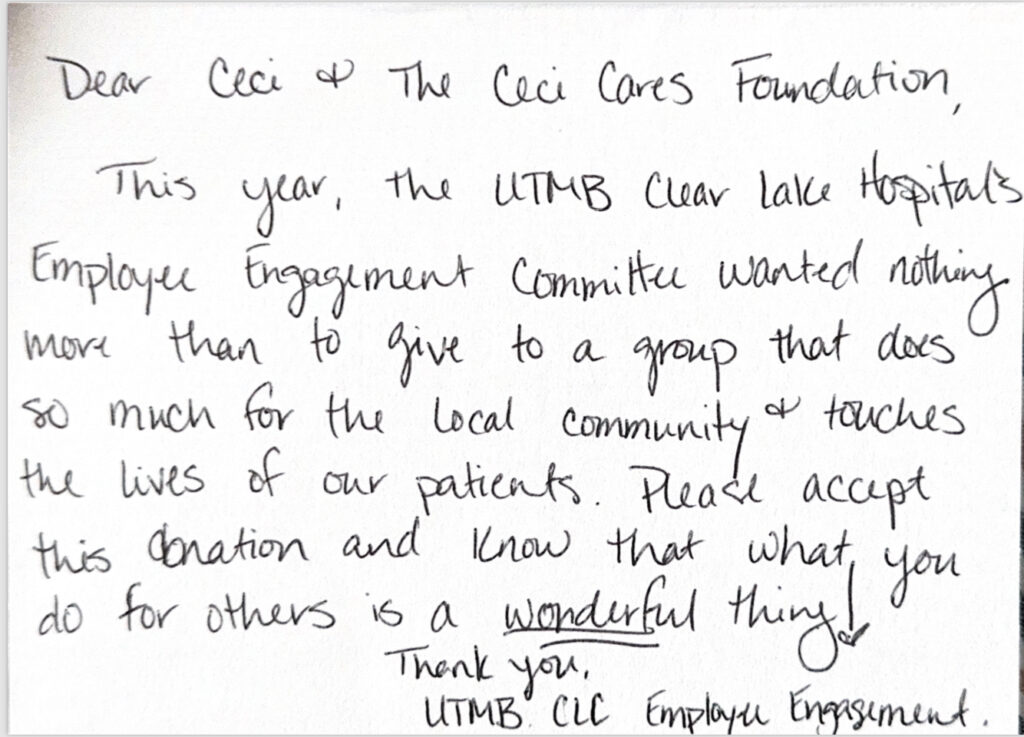 Dear Ceci & The Ceci Cares Foundation,
This year, the UTMB Clear Lake Hospital's
Employee Engagement Committee wanted nothing
more than to give to a group that does
so much for the local community & touches
the lives of our patients. Please accept
this donation and know that what you
do for others is a wonderful thing!
Thank you,
UTMB CLC Employee Engagement.